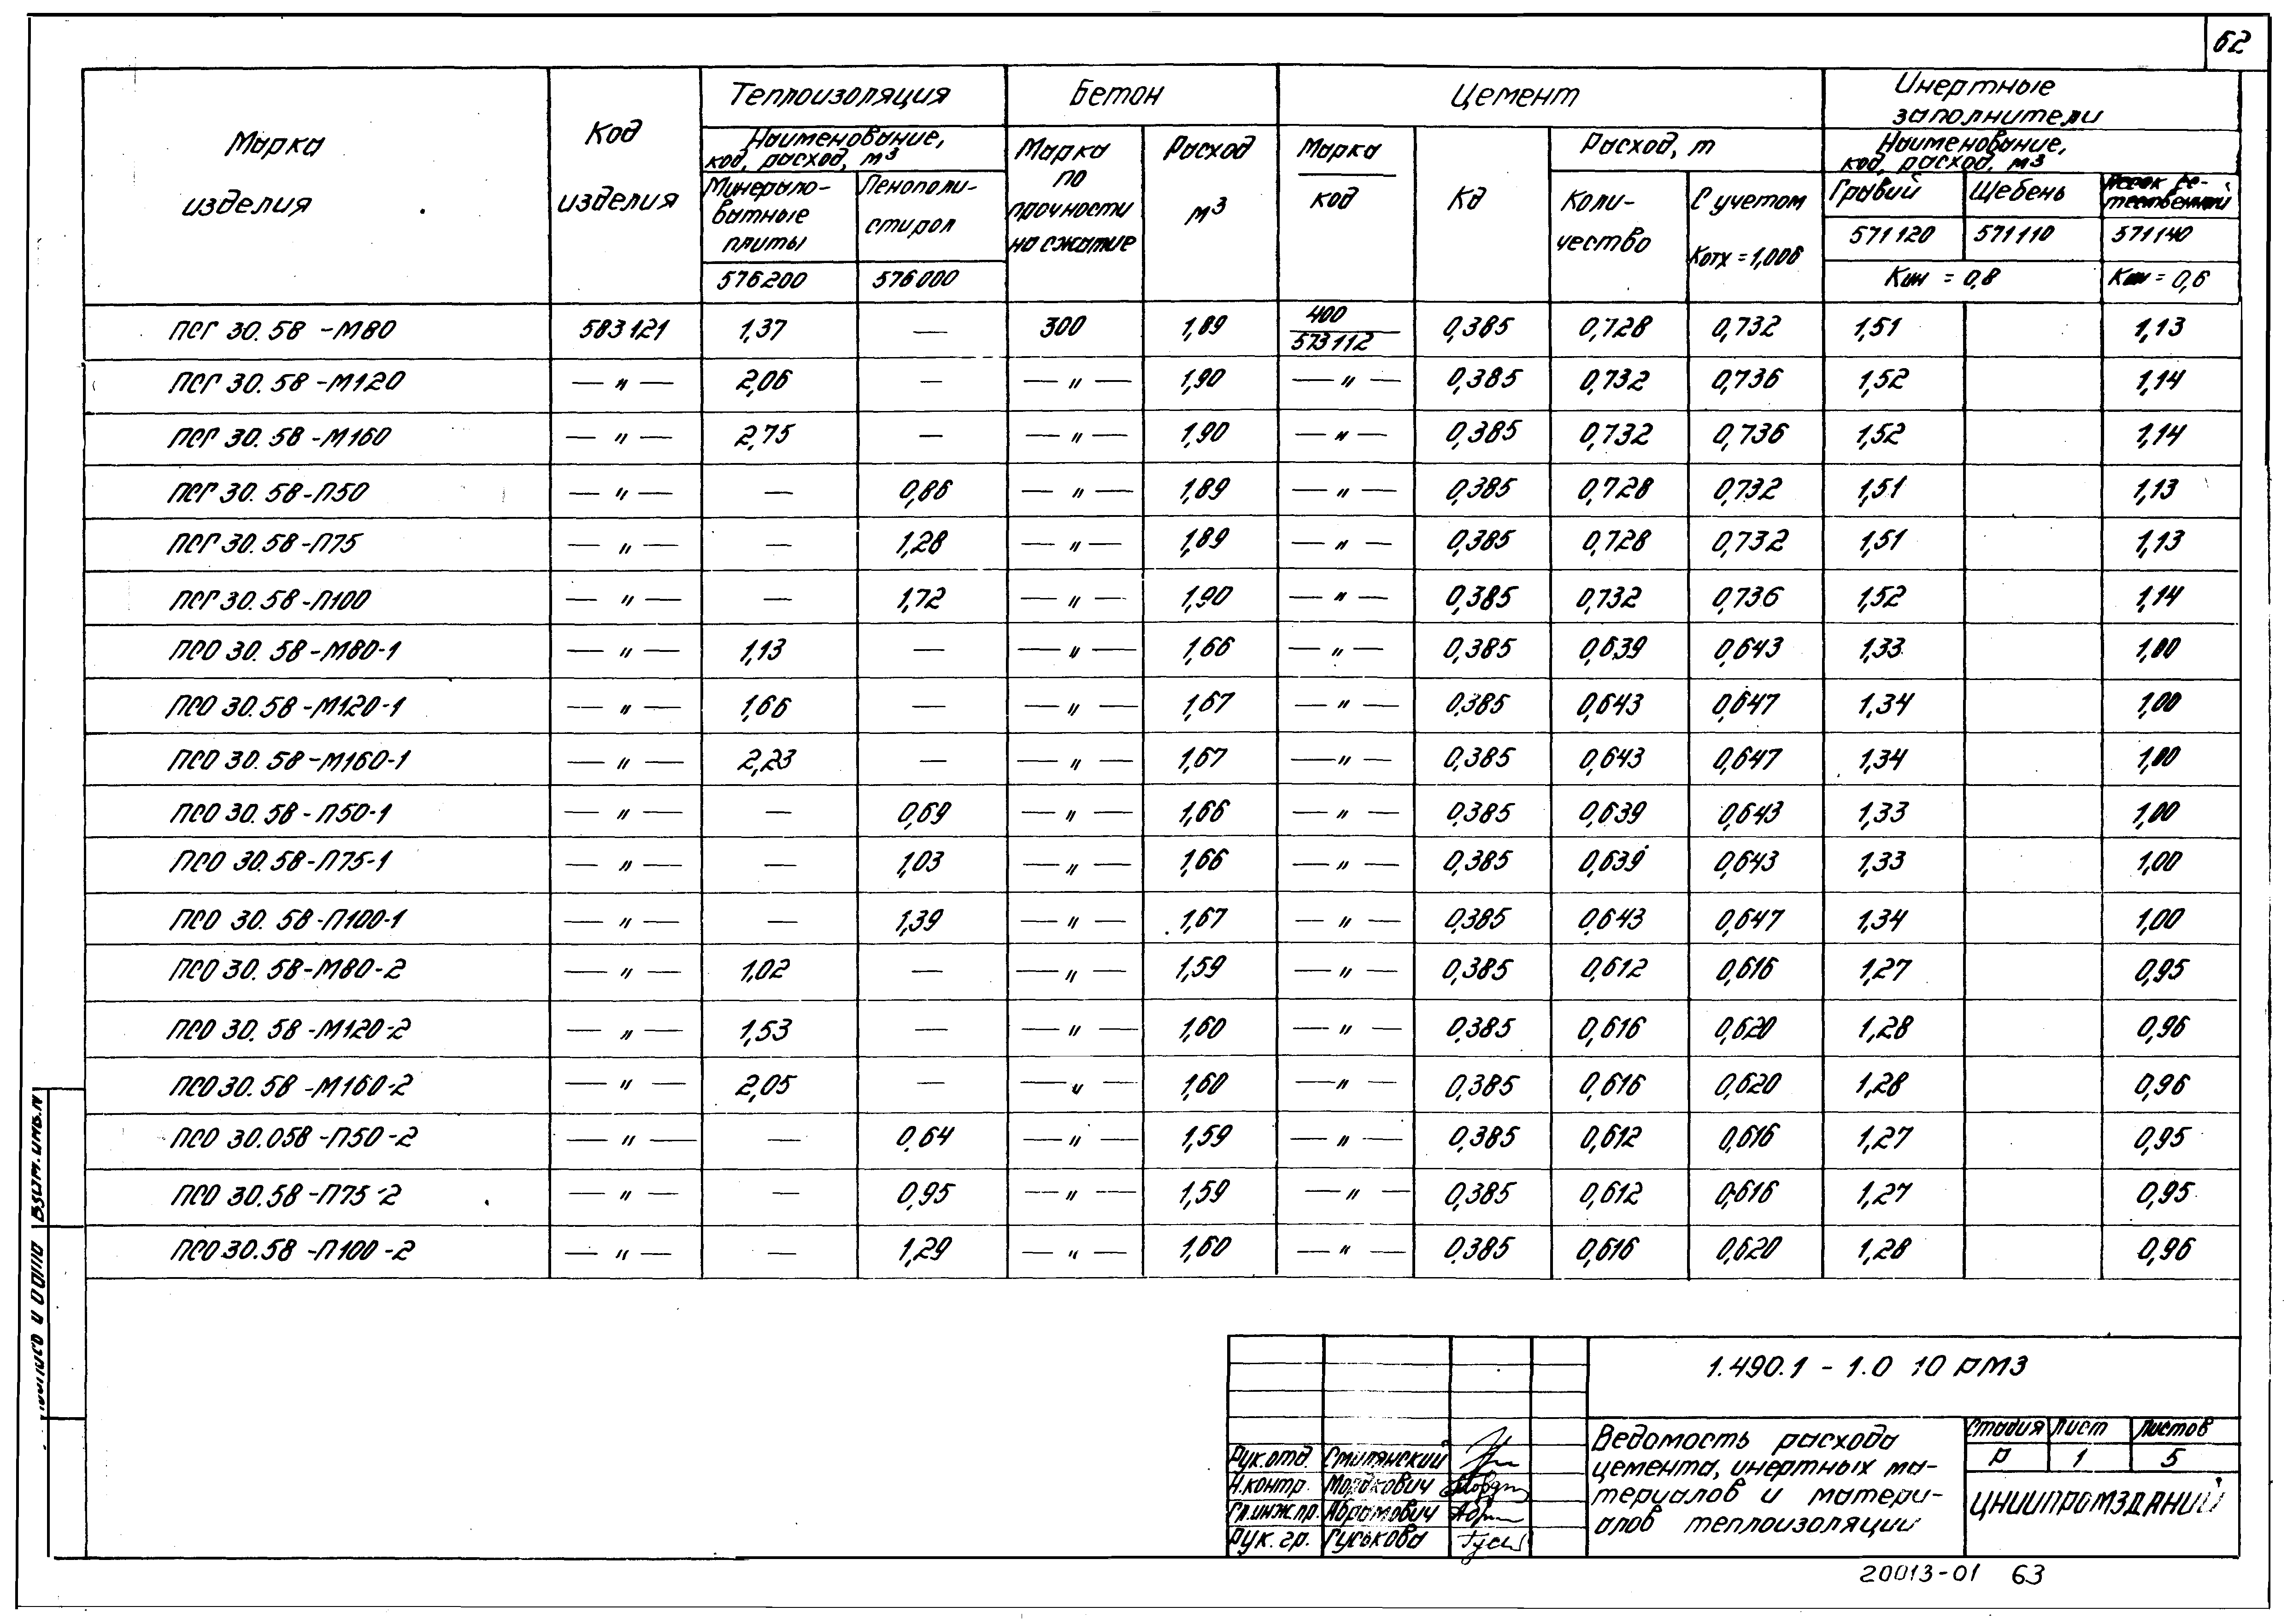 62
Марка изделия
Код изделия
Теплоизоляция
Бетон
Цемент
Инертные заполнители
Наименование, код, расход, м³
Марка по прочности на сжатие
Расход м³
Марка
код
Кд
Расход, т
Наименование, код, расход, м³
Минерало-
ватные
плиты
Пенополи-
стирол
Коли-
чество
С учетом
Котх = 1,006
Гравий
Щебень
Песок ес-
тественный
576200
576000
571120
571110
571140
Кин = 0,8
Кин = 0,6
ПСГ 30.58 -М80 583121 1,37 — 300 1,89 400/573112 0,385 0,728 0,732 1,51 1,13
ПСГ 30.58 -М120 — " — 2,06 — — " — 1,90 — " — 0,385 0,732 0,736 1,52 1,14
ПСГ 30.58 -М160 — " — 2,75 — — " — 1,90 — " — 0,385 0,732 0,736 1,52 1,14
ПСГ 30.58-П50 — " — — 0,86 — " — 1,89 — " — 0,385 0,728 0,732 1,51 1,13
ПСГ 30.58-П75 — " — — 1,28 — " — 1,89 — " — 0,385 0,728 0,732 1,51 1,13
ПСГ 30.58-П100 — " — — 1,72 — " — 1,90 — " — 0,385 0,732 0,736 1,52 1,14
ПСО 30.58-М80-1 — " — 1,13 — — " — 1,66 — " — 0,385 0,639 0,643 1,33 1,00
ПСО 30.58-М120-1 — " — 1,66 — — " — 1,67 — " — 0,385 0,643 0,647 1,34 1,00
ПСО 30.58-М160-1 — " — 2,23 — — " — 1,67 — " — 0,385 0,643 0,647 1,34 1,00
ПСО 30.58-П50-1 — " — — 0,69 — " — 1,66 — " — 0,385 0,639 0,643 1,33 1,00
ПСО 30.58-П75-1 — " — — 1,03 — " — 1,66 — " — 0,385 0,639 0,643 1,33 1,00
ПСО 30.58-П100-1 — " — — 1,39 — " — 1,67 — " — 0,385 0,643 0,647 1,34 1,00
ПСО 30.58-М80-2 — " — 1,02 — — " — 1,59 — " — 0,385 0,612 0,616 1,27 0,95
ПСО 30.58-М120-2 — " — 1,53 — — " — 1,60 — " — 0,385 0,616 0,620 1,28 0,96
ПСО 30.58-М160-2 — " — 2,05 — — " — 1,60 — " — 0,385 0,616 0,620 1,28 0,96
ПСО 30.058-П50-2 — " — — 0,64 — " — 1,59 — " — 0,385 0,612 0,616 1,27 0,95
ПСО 30.58-П75-2 — " — — 0,95 — " — 1,59 — " — 0,385 0,612 0,616 1,27 0,95
ПСО 30.58-П100-2 — " — — 1,29 — " — 1,60 — " — 0,385 0,616 0,620 1,28 0,96
Взам.инв.N
1.490.1 - 1.0 10 РМ3
Рук.отд. Смилянский
Н.контр. Мордкович
Гл.инж.пр. Абрамович
Рук. гр. Гуськова
Ведомость расхода
цемента, инертных ма-
териалов и матери-
алов теплоизоляции
Стадия Лист Листов
Р 1 5
ЦНИИПРОМЗДАНИЙ
20013-01 63